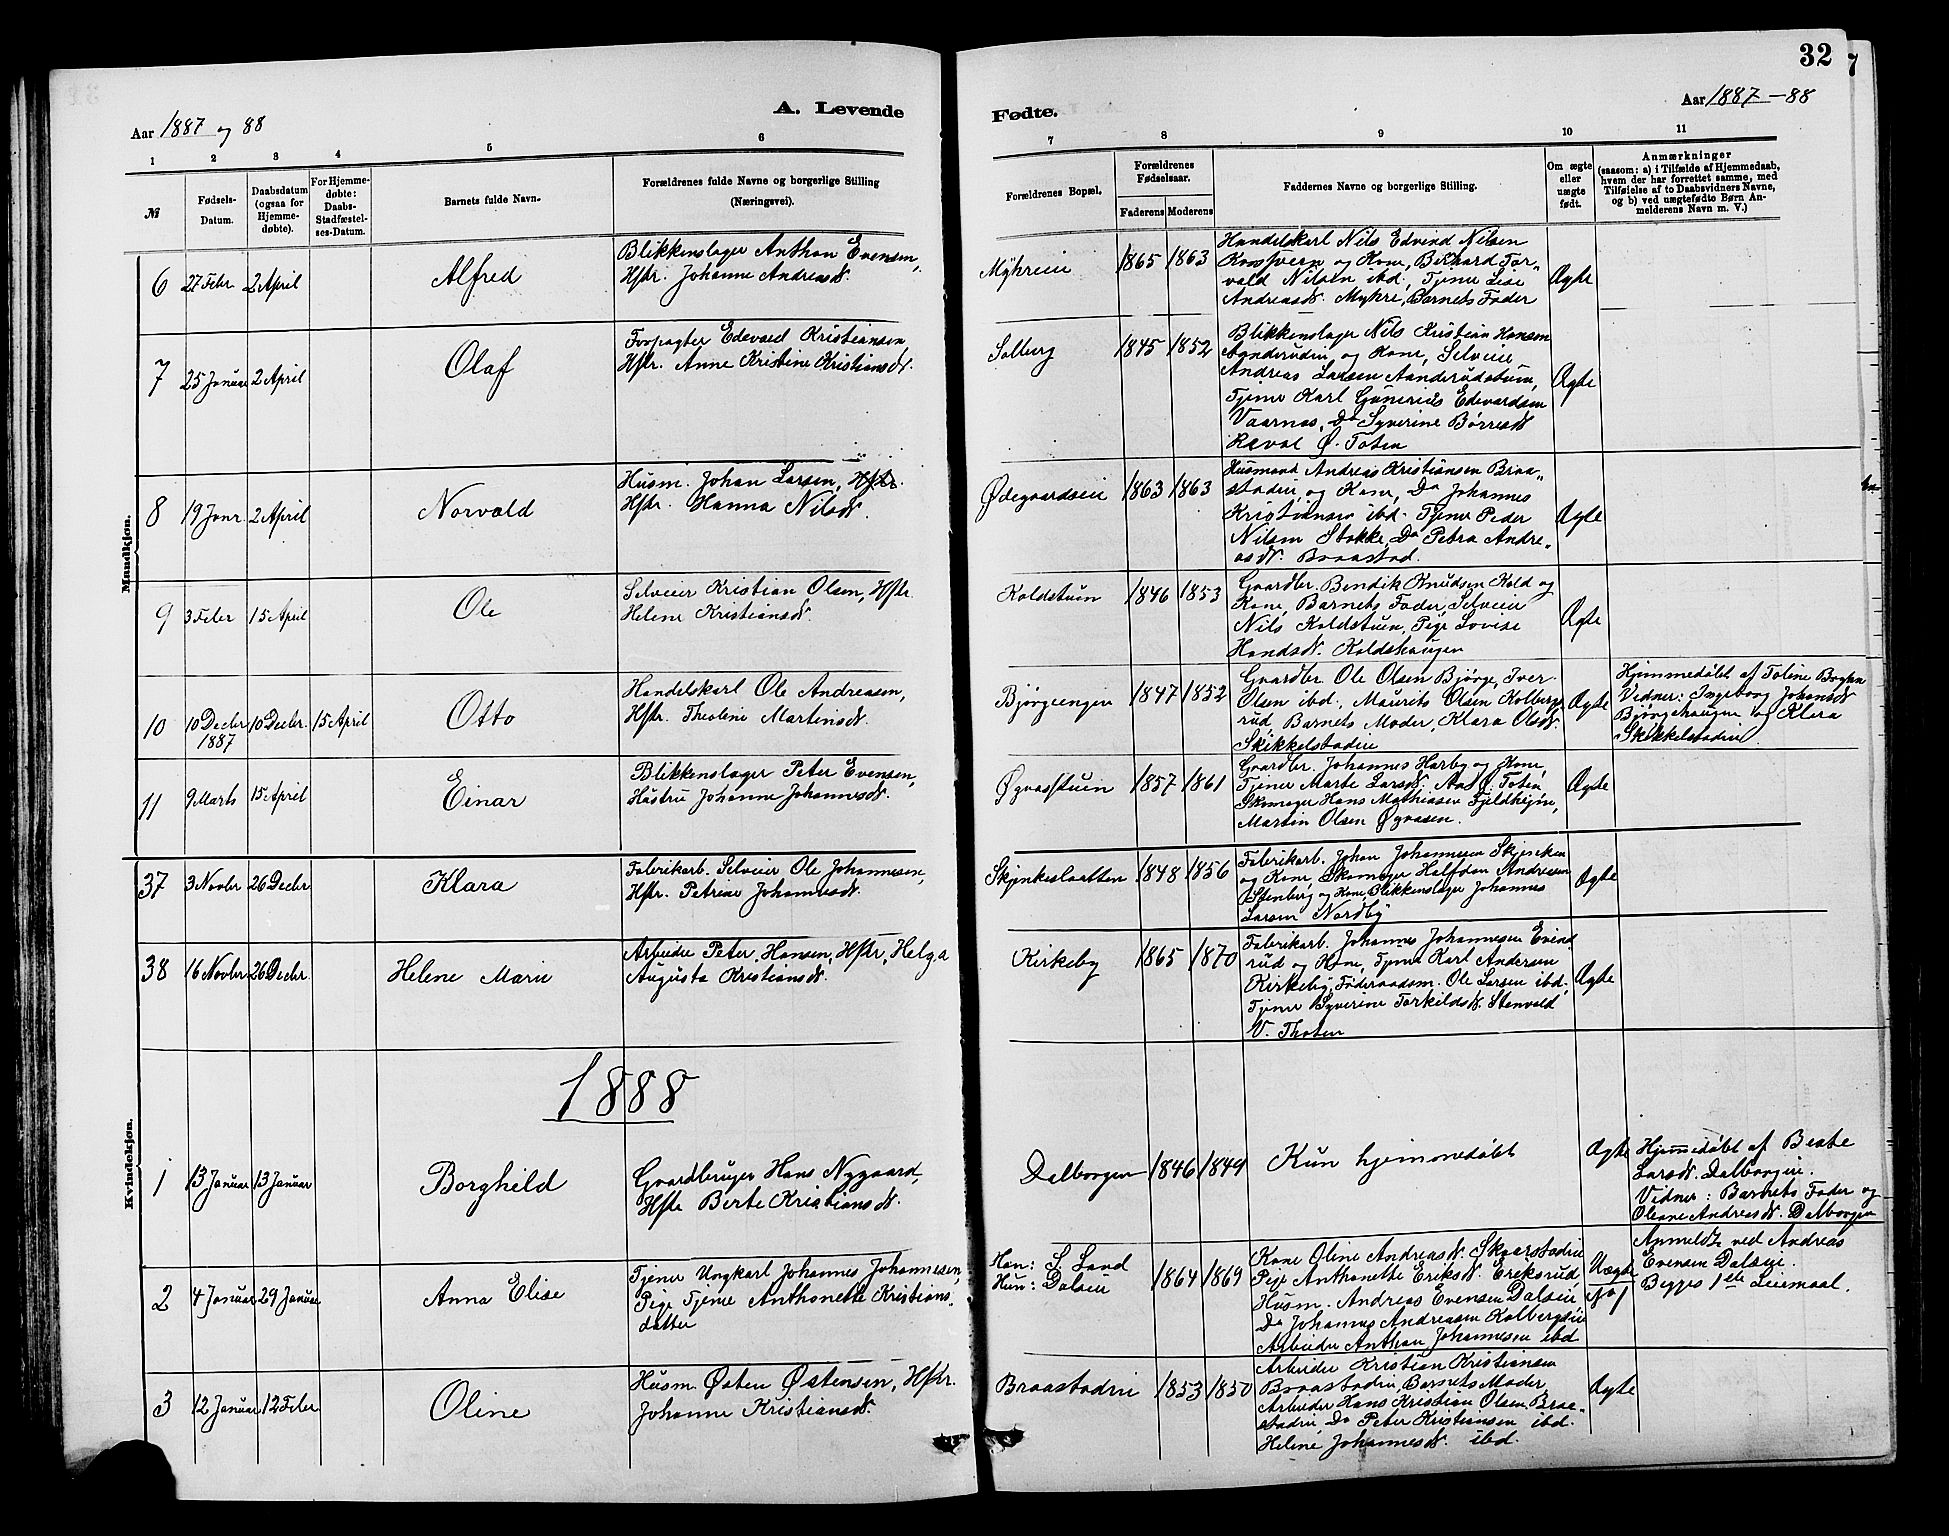 32
7
Aar 1887 og 88
A. Levende
Fødte.
Aar 1887-88
1 2 3 4 5 6 7 8 9 10 11
№
Fødsels-
Datum.
Daabsdatum
(ogsaa for
Hjemme-
døbte).
For Hjemme-
døbte:
Daabs-
Stadfæstel-
ses-Datum.
Barnets fulde Navn.
Forældrenes fulde Navne og borgerlige Stilling
(Næringsvei).
Forældrenes Bopæl.
Forældrenes
Fødselsaar.
Faderens Moderens
Faddernes Navne og borgerlige Stilling.
Om ægte
eller
uægte
født.
Anmærkninger
(saasom: a) i Tilfælde af Hjemmedaab,
hvem der har forrettet samme, med
Tilføielse af to Daabsvidners Navne,
og b) ved uægtefødte Børn An-
melderens Navn m. V.)
Mandkjøn.
6 27 Febr 2 April Alfred
Blikkenslager Anthon Evensen,
Hstr. Johanne Andreasd.
Myhreie 1865 1863
Handelskarl Nils Edvind Nilsen
og Kone, Berhard Tor-
vald Nilsen ibd, Tjener Lise
Andreasd. Myhre, Barnets Fader
Ægte
7 25 Januar 2 April Olaf
Forpagter Edevard Kristiansen,
Hstr. Anne Kristine Kristiansd.
Solberg 1845 1852
Blikkenslager Nils Kristian Hansen
og Kone, Selveier
Andreas Larsen Aanderudstuen,
Tjener Karl Edevardsen
Vaarnas, Do Syverine Børresd
Ræval Ø. Toten
Ægte
8 19 Janr. 2 April Norvald
Husm. Johan Larsen, Hstr.
Hstr. Hanna Nilsd.
Ødegaardseie 1863 1863
Husmand Andreas Kristiansen Braa-
stadeie og Kone, Do Johannes
Kristiansen ibd. Tjener Peder
Nilsen Stokke, Do Petra Andre-
asd. Braastad.
Ægte
9 3 Feber 15 April Ole
Selveier Kristian Olsen, Hstr.
Helene Kristiansd.
Koldstuen 1846 1853
Gaardbr. Bendik Knudsen Kold og
Kone, Barnets Fader, Selveier
Nils Koldstuen, Pige Lovise
Hansd. Koldshaugen
Ægte
10 10 Decbr 10 Decbr. 15 April Otto
1887
Handelskarl Ole Andreasen,
Hstr. Theoline Martinsd.
Bjørgeengen 1847 1852
Gaardbr. Ole Olsen Bjørge, Iver
Olsen ibd., Maurits Olsen Kolbergs-
rud, Barnets Moder, Klara Olsd.
Skikkelstadeie
Ægte
Hjemmedøbt af Toline
Vidner: Ingeborg Johansd
Bjørgehaugen og Klara
Skikkelstadeie.
11 9 Marts 15 April Einar
Blikkenslager Peter Evensen,
Hustru Johanne Johannesd.
Øgaasstuen 1857 1861
Gaardbr. Johannes Harby og Kone,
Tjener Marte Larsd. Aas Ø. Toten,
Skomager Hans Mathiasen Fjeldhejm,
Martin Olsen Øgaasen.
Ægte
Kvindekjøn.
37 3 Novbr 26 Decbr. Klara
Fabrikarb. Selveier Ole Johannesen,
Hstr. Petrine Johannesd.
Skjenkeslaatten 1848 1856
Fabrikarb. Johan Johannesen Skjenken
og Kone, Skomager Halfdan Andresen
Stenberg og Kone, Blikkenslager Johannes
Larsen Nordby
Ægte
38 16 Novbr 26 Decbr. Helene Marie
Arbeider Peter Hansen, Hstr, Helga
Augusta Kristiansd.
Kirkeby 1865 1870
Fabrikarb. Johannes Johannesen Evind
rud og Kone, Tjener Karl Andersen
Kirkeby, Føderaadsm. Ole Larsen ibd,
Tjener Syverine Torkildsd. Stenvold
V. Thoten
Ægte
1888
1 13 Januar 13 Januar Borghild
Gaardbruger Hans Nygaard,
Hstr Berte Kristiansd.
Dalborgen 1846 1849
Kun hjemmedøbt
Ægte
Hjemmedøbt af Beate
Larsd. Dalborgeie.
Vidner: Barnets Fader og
Oleane Andreasd. Dalborgen
2 4 Januar 29 Januar Anna Elise
Tjener Ungkarl Johannes Johannesen,
Pige Tjener Anthonette Kristians-
datter
Han: S. Land
Hun: Dalseie
1864 1869
Kone Oline Andreasd. Skaarstadeie
Pige Anthonette Eriksd. Eriksrud,
Husm. Andreas Evensen Dalseie,
Do Johannes Andreassen Kolbergseie
Arbeider Anthon Johannesen ibd
Uægte
No 1
Anmeldt ved Andreas
Evensen Dalseie.
Begges 1ste Leiermaal.
3 12 Januar 12 Feber Oline
Husm. Østen Østensen, Hstr.
Johanne Kristiansd.
Braastadeie 1853 1850
Arbeider Kristian Kristiansen
Braastadeie, Barnets Moder,
Arbeider Hans Kristian Olsen Braa-
stadeie, Do Peter Kristiansen ibd.
Helene Johannesd. ibd.
Ægte